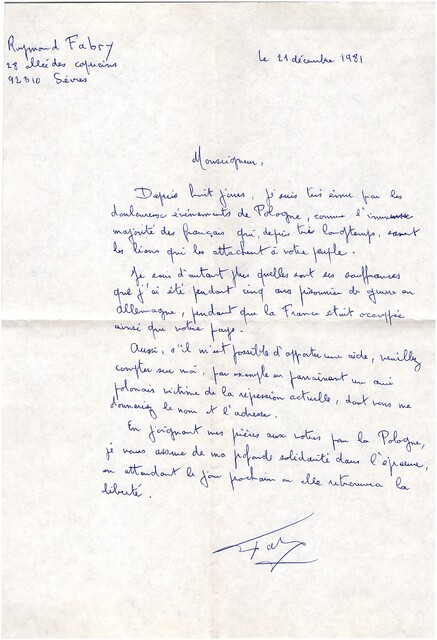 Raymond Fabry
28 allée des capucins
92310 Sèvres
le 21 décembre 1981
Monseigneur,
Depuis huit jours, je suis très ému par les
douloureux évènements de Pologne, comme l'immense
majorité des français qui, depuis très longtemps, savent
les liens qui les attachent à votre peuple.
Je sais d'autant plus quelles sont ses souffrances
que j'ai été pendant cinq ans prisonnier de guerre en
Allemagne, pendant que la France était occupée
ainsi que votre pays.
Aussi, s'il m'est possible d'apporter une aide, veuillez
compter sur moi, par exemple en parrainant un ami
polonais victime de la répression actuelle, dont vous me
donneriez le nom et l'adresse.
En joignant mes prières aux votres pour la Pologne,
je vous assure de ma profonde solidarité dans l'épreuve,
en attendant le jour prochain où elle retrouvera la
liberté.